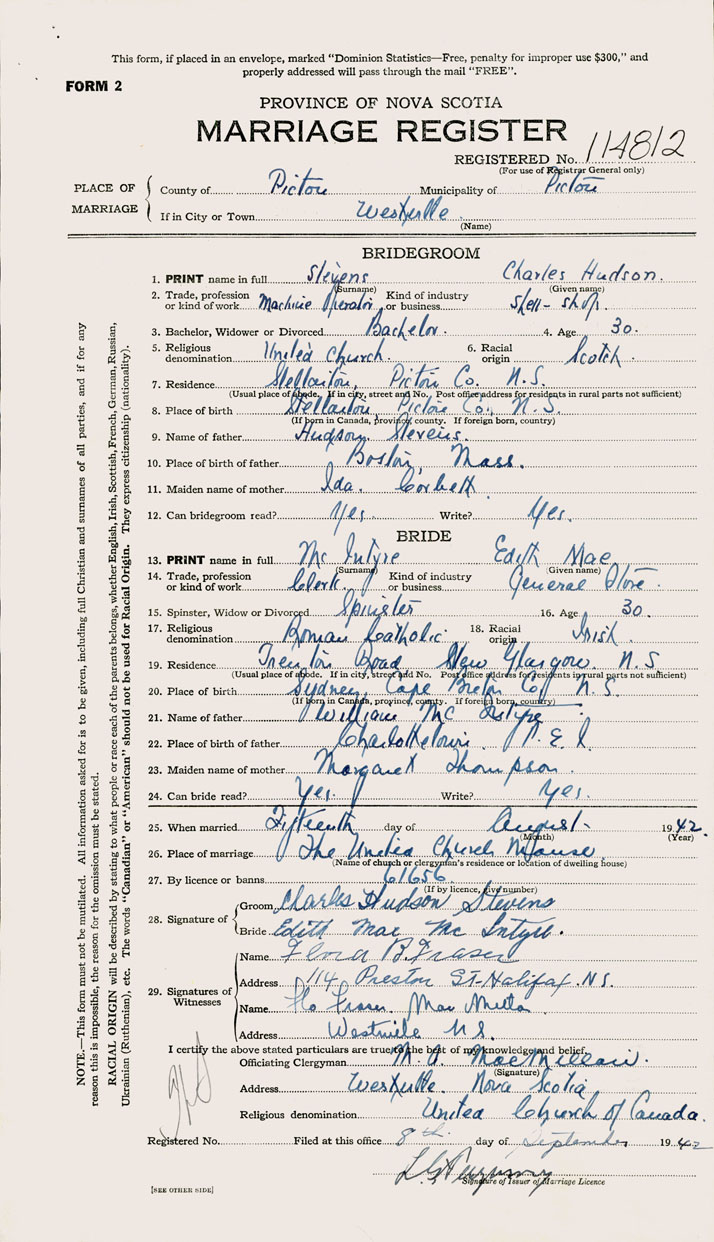 This form, if placed in an envelope, marked "Dominion Statistics—Free, penalty for improper use $300," and
properly addressed will pass through the mail "FREE".
FORM 2
PROVINCE OF NOVA SCOTIA
MARRIAGE REGISTER
REGISTERED No. 114812
(For use of Registrar General only)
PLACE OF MARRIAGE
County of Pictou Municipality of Pictou
If in City or Town Westville
(Name)
BRIDEGROOM
1. PRINT name in full Stevens Charles Hudson.
(Surname) (Given name)
2. Trade, profession or kind of work Machine Operator Kind of industry or business Shell-shop.
3. Bachelor, Widower or Divorced Bachelor. 4. Age 30.
5. Religious denomination United Church. 6. Racial origin Scotch.
7. Residence Stellarton, Pictou Co. N.S.
(Usual place of abode. If in city, street and No. Post office address for residents in rural parts not sufficient)
8. Place of birth Stellarton, Pictou Co., N.S.
(If born in Canada, province, county. If foreign born, country)
9. Name of father Hudson Stevens.
10. Place of birth of father Boston, Mass.
11. Maiden name of mother Ida Corbett
12. Can bridegroom read? Yes. Write? Yes.
BRIDE
13. PRINT name in full Mc Intyre Edith Mae
(Surname) (Given name)
14. Trade, profession or kind of work Clerk. Kind of industry or business General Store.
15. Spinster, Widow or Divorced Spinster 16. Age 30.
17. Religious denomination Roman Catholic 18. Racial origin Irish.
19. Residence Trenton Road New Glasgow N.S
(Usual place of abode. If in city, street and No. Post office address for residents in rural parts not sufficient)
20. Place of birth Sydney, Cape Breton Co., N.S.
(If born in Canada, province, county. If foreign born, country)
21. Name of father William Mc Intyre
22. Place of birth of father Charlottetown. P.E.I.
23. Maiden name of mother Margaret Thompson.
24. Can bride read? Yes. Write? Yes.
25. When married Fifteenth day of August 1942.
(Month) (Year)
26. Place of marriage The United Church Manse
(Name of church or clergyman's residence or location of dwelling house)
27. By licence or banns 61656
(If by licence, give number)
28. Signature of
Groom Charles Hudson Stevens
Bride Edith Mae Mc Intyre.
29. Signatures of Witnesses
Name Flora B. Fraser
Address 114 Preston St. Halifax. N.S.
Name Flo Fraser Mac
Address Westville N.S.
I certify the above stated particulars are true to the best of my knowledge and belief.
Officiating Clergyman M. A. MacMillan.
(Signature)
Address Westville Nova Scotia
Religious denomination United Church of Canada.
Registered No. Filed at this office 8th day of September 1942
Signature of Issuer of Marriage Licence
[SEE OTHER SIDE]
NOTE.—This form must not be mutilated. All information asked for is to be given, including full Christian and surnames of all parties, and if for any
reason this is impossible, the reason for the omission must be stated.
RACIAL ORIGIN will be described by stating to what people or race each of the parents belongs, whether English, Irish, Scottish, French, German, Russian,
Ukrainian (Ruthenian), etc. The words "Canadian" or "American" should not be used for Racial Origin. They express citizenship (nationality).